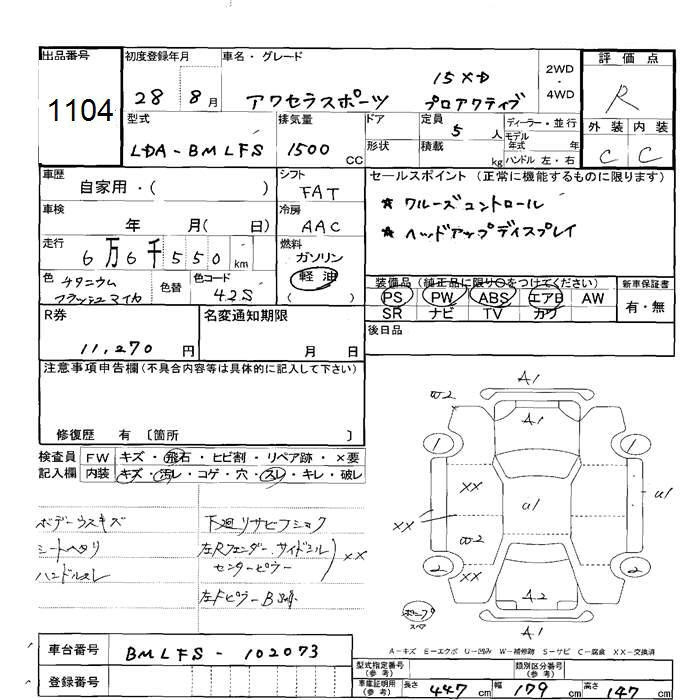 出品番号
1104
初度登録年月
28 8月
車名・グレード
15XD
アクセラスポーツ プロアクティブ
2WD
・
4WD
評価点
R
外装 内装
C C
型式
LDA-BMLFS
排気量
1500 CC
ドア
形状
定員
5 人
積載
kg
ディーラー・並行
モデル
年式 年
ハンドル 左・右
車歴
自家用・( )
シフト
FAT
車検
年 月( 日)
冷房
AAC
走行
6万6千550km
燃料
ガソリン
軽油
( )
色
チタニウム
フラッシュマイカ
色替
色コード
42S
セールスポイント (正常に機能するものに限ります)
★ クルーズコントロール
★ ヘッドアップディスプレイ
装備品 (純正品に限り○をつけてください)
PS PW ABS エアB AW
SR ナビ TV カワ
新車保証書
有・無
後日品
R券
11,270 円
名変通知期限
月 日
注意事項申告欄(不具合内容等は具体的に記入して下さい)
修復歴 有 〔箇所 〕
検査員
記入欄
FW キズ・飛石・ヒビ割・リペア跡・×要
内装 キズ・汚レ・コゲ・穴・スレ・キレ・破レ
ボデーウスキズ
シートヘタリ
ハンドルスレ
下廻リサビフショク
左Rフェンダー・サイドシル
センターピラー
XX
左Fピラー B
A1
W2
A1
1
1
XX
U1
U1
XX
W2
2
2
XX
A2
A1
スペア
A-キズ E-エクボ U-凹み W-補修跡 S-サビ C-腐食 XX-交換済
車台番号
BMLFS-102073
登録番号
型式指定番号
(参考)
類別区分番号
(参考)
車庫証明用
(参考)
長さ 447 cm 幅 179 cm 高さ 147 cm